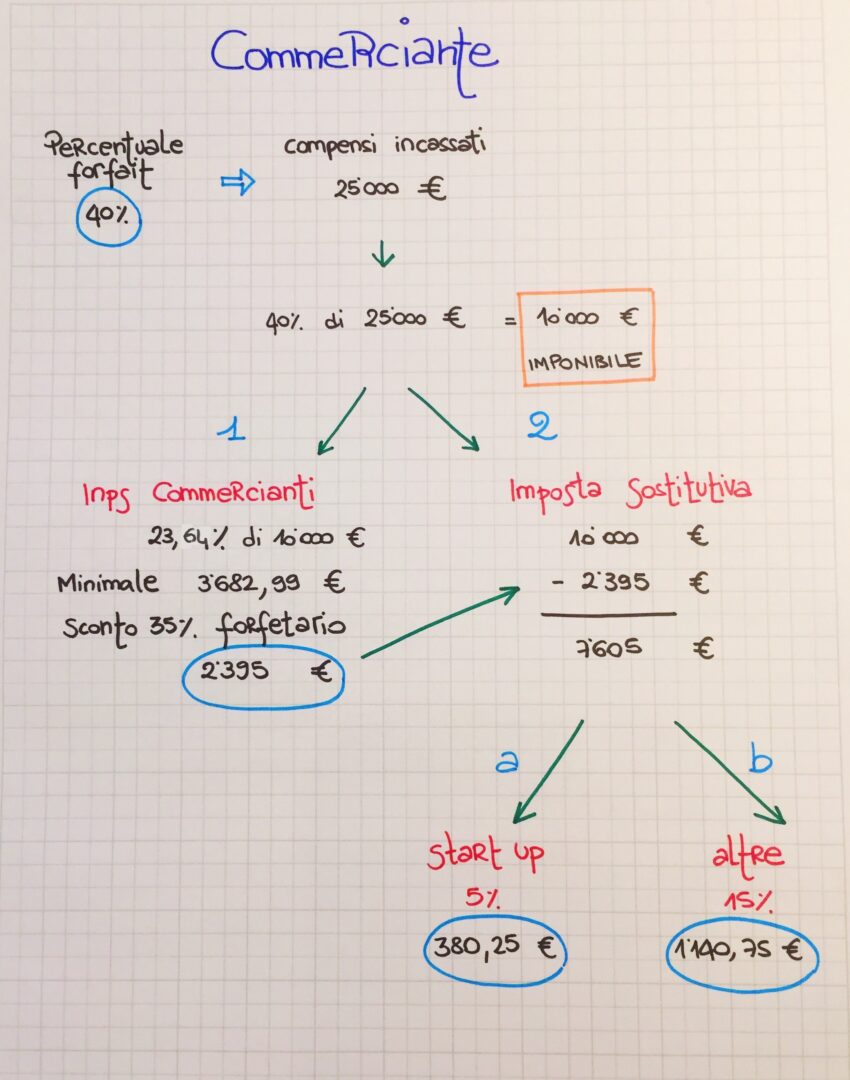 CommeRciante
PeRcentuale
forfait
40%
compensi incassati
25'000 €
40% di 25'000 € = 10'000 €
IMPONIBILE
1
2
Inps CommeRcianti
23,64% di 10'000 €
Minimale 3'682,99 €
Sconto 35% forfetario
2'395 €
Imposta Sostitutiva
10'000 €
- 2'395 €
7'605 €
a
b
Start up
5%
380,25 €
altre
15%
1'140,75 €